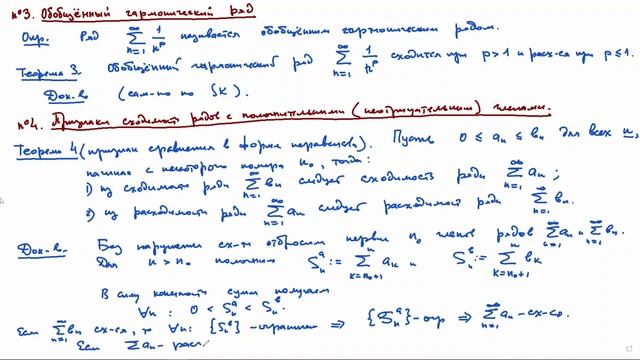 п°3. Обобщённый гармонический ряд
Опр. Ряд ∑_{n=1}^{∞} 1/n^p называется обобщённым гармоническим рядом.
Теорема 3. Обобщённый гармонический ряд ∑_{n=1}^{∞} 1/n^p сходится при p>1 и расх-ся при p≤1.
Док-во (сам-но по
п°4. Признаки сходимости рядов с положительными (неотрицательными) членами.
Теорема 4 (признак сравнения в форме неравенств). Пусть 0 ≤ aₙ ≤ bₙ для всех n,
начиная с некоторого номера n₀, тогда:
1) из сходимости ряда ∑_{n=1}^{∞} bₙ следует сходимость ряда ∑_{n=1}^{∞} aₙ;
2) из расходимости ряда ∑_{n=1}^{∞} aₙ следует расходимость ряда ∑_{n=1}^{∞} bₙ.
Док-во. Без нарушения сх-ти отбросим первые n₀ членов рядов ∑_{n=1}^{∞} aₙ и ∑_{n=1}^{∞} bₙ.
Для n > n₀ положим Sₙᵃ := ∑_{k=n₀+1}^{n} aₖ и Sₙᵇ := ∑_{k=n₀+1}^{n} bₖ
В силу конечности сумм получаем
∀n: 0 < Sₙᵃ < Sₙᵇ.
Если ∑_{n=1}^{∞} bₙ сх-ся, то ∀n: {Sₙᵇ} - ограничен ⇒ {Sₙᵃ} - огр ⇒ ∑_{n=1}^{∞} aₙ - сх-ся.
Если ∑aₙ - расх